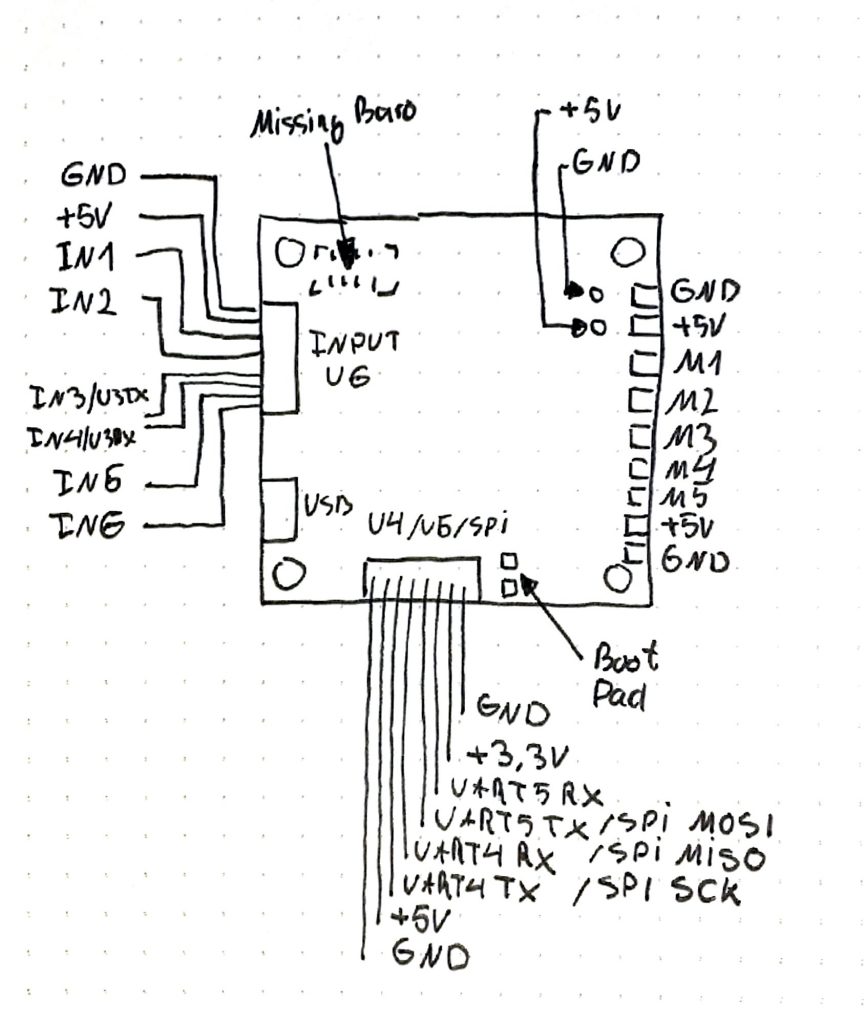 Missing Baro
+5V
GND
GND
+5V
IN1
IN2
IN3/U3TX
IN4/U3RX
IN5
IN6
INPUT
U6
USB
U4/U5/SPi
GND
+5V
M1
M2
M3
M4
M5
+5V
GND
Boot
Pad
GND
+3,3V
UART5 RX
UART5 TX /SPi MOSI
UART4 RX /SPi MiSO
UART4 TX /SPI SCK
+5V
GND